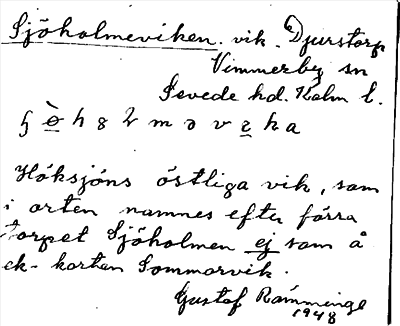 Sjöholmeviken. vik. Djurstorp
Vimmerby sn
Sevede hd. Kalm l.
Höksjöns östliga vik, som
i orten namnes efter förra
torpet Sjöholmen ej som å
ek-kartan Sommarvik.
Gustaf Ramminge
1948